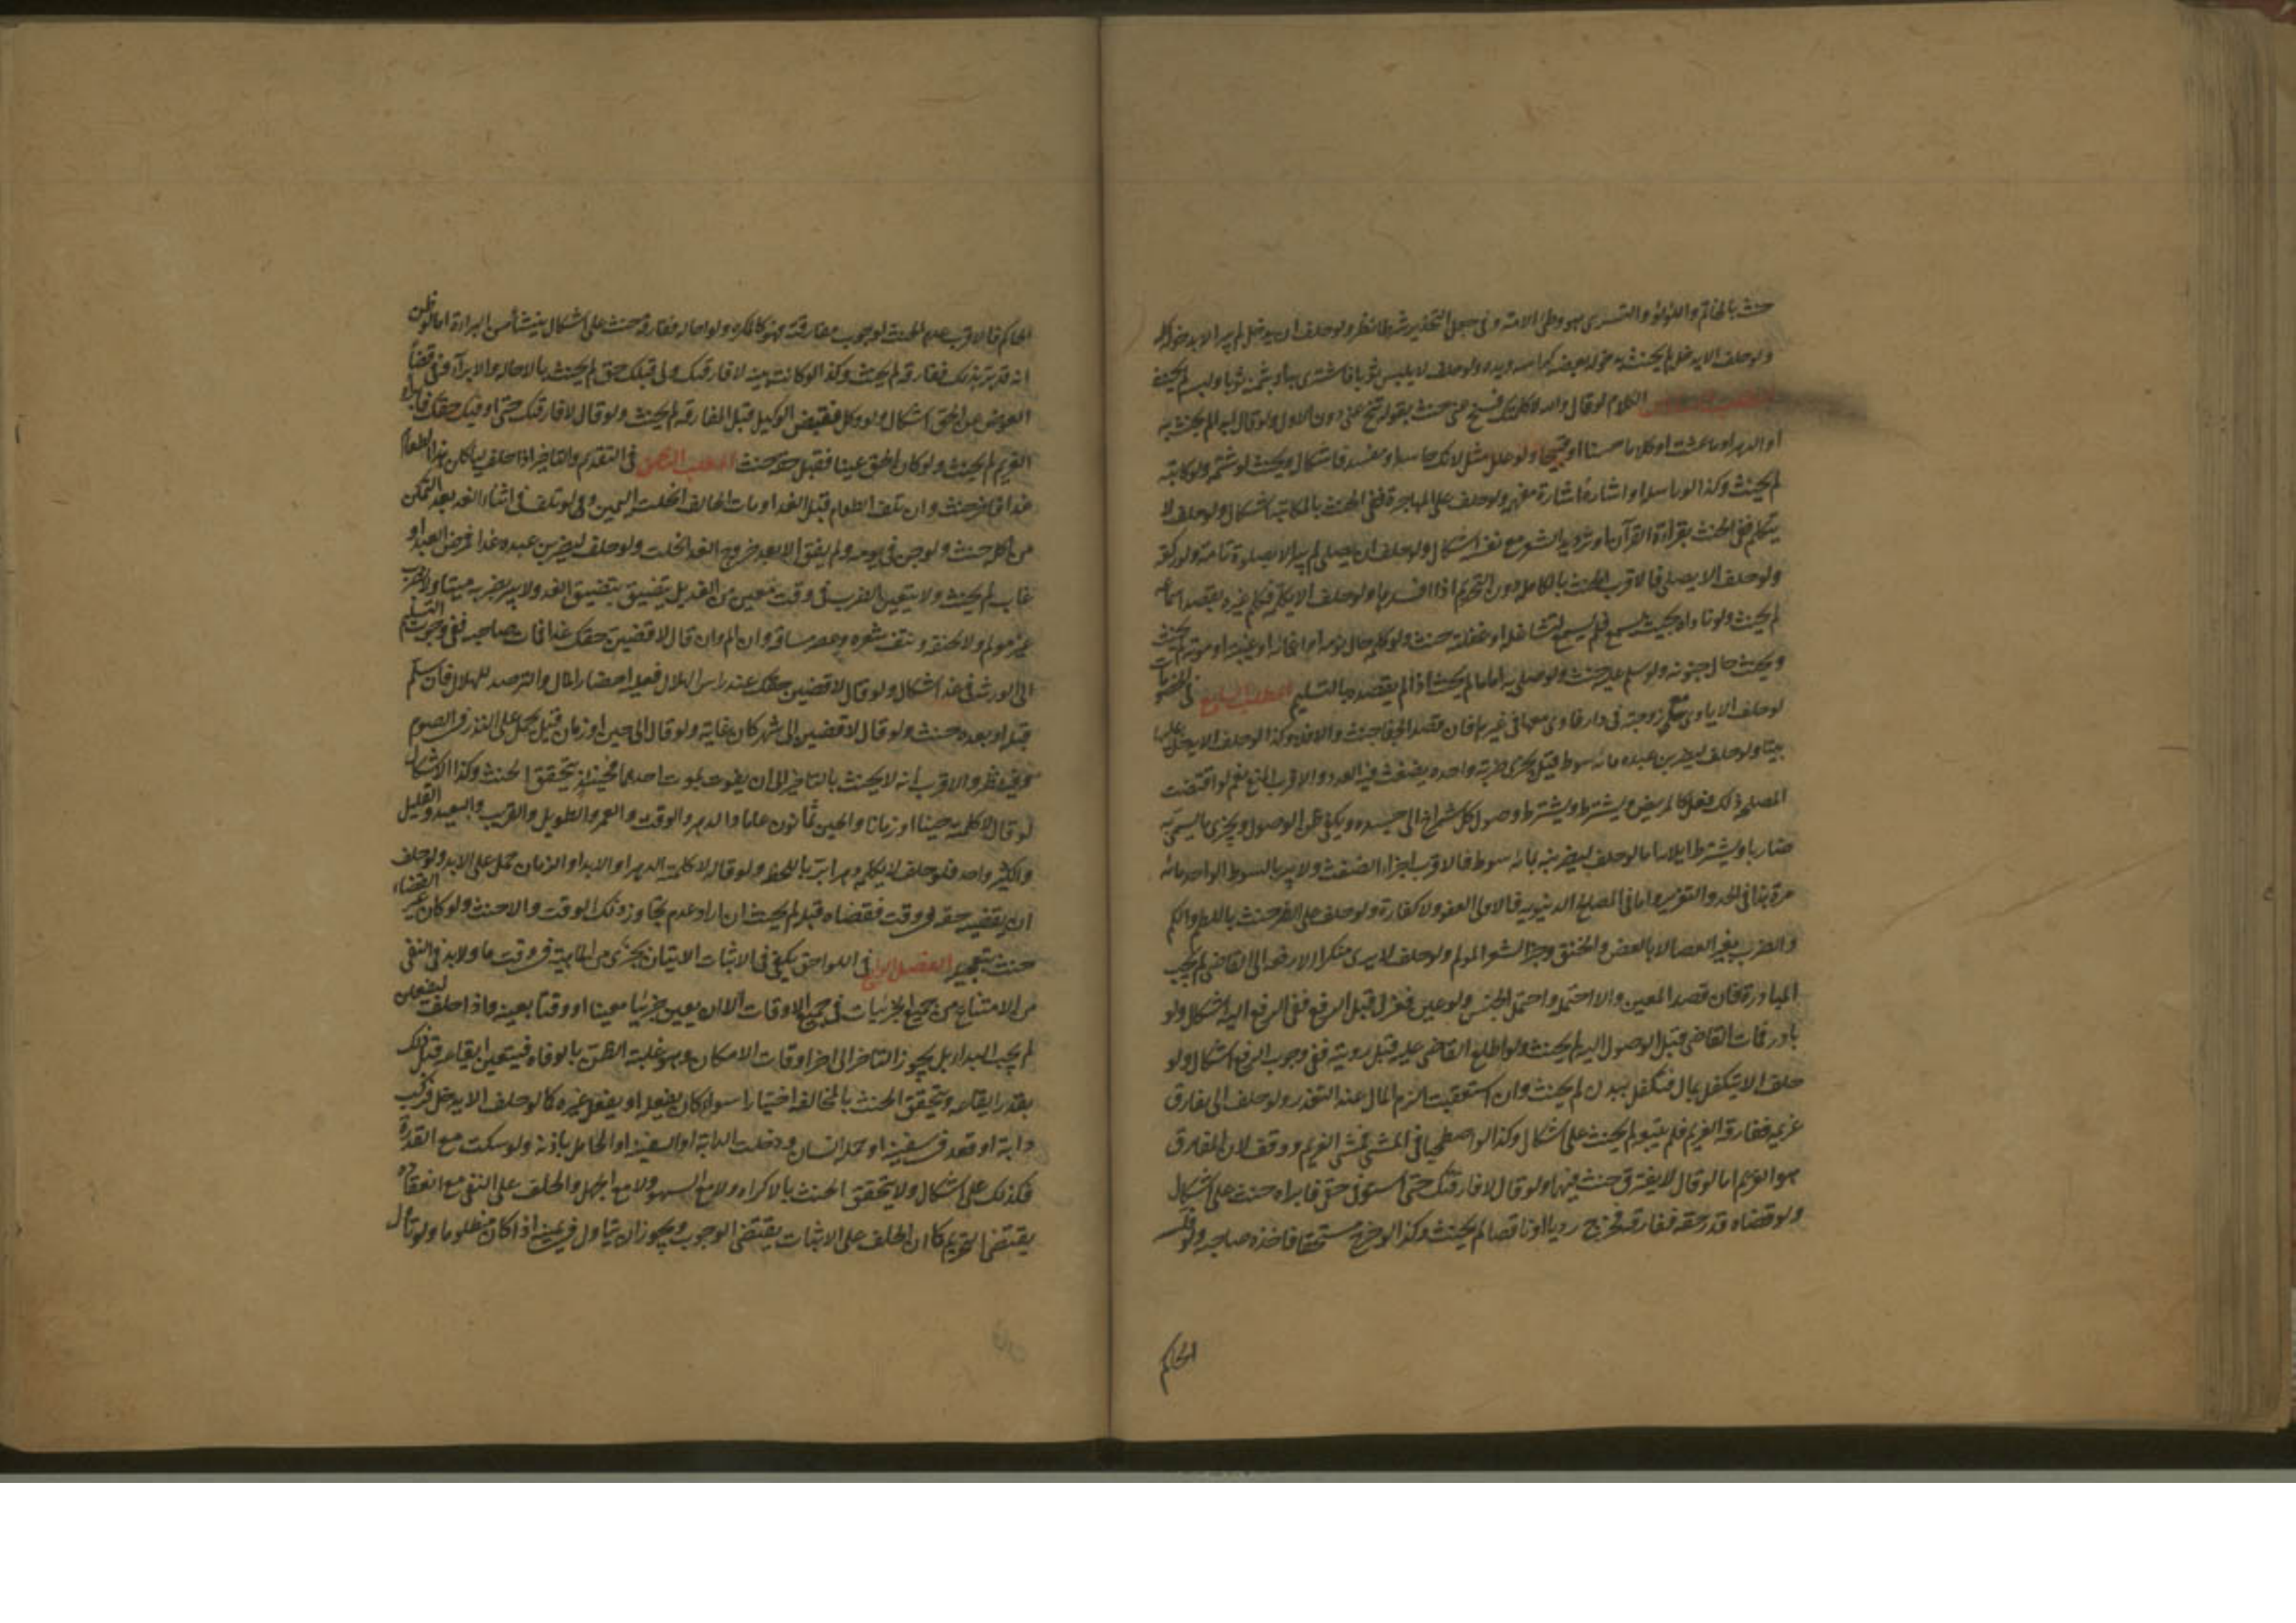 حنث بالخاتم واللؤلؤ والتسرى هو وطى الامة وفى جعل التخدير شرطا نظر ولو حلف ان يدخل لم يبر الا بدخوله كله
ولو حلف الا يدخل لم يحنث بدخول بعضه كراسه ويده ولو حلف لا يلبس ثوبا فاشترى به او بثمنه ثوبا ولبسه لم يحنث
الكلام لو قال والله لا كلمتك فتنح عنى حنث بقوله تنح عنى دون الاول ولو قال ابدا لم يحنث به
او الدهر او ما عشت او كلاما حسنا او قبيحا ولو علل مثل لانك حاسد او مفسد فاشكال ويحنث لو شتمه ولو كاتبه
لم يحنث وكذا لو راسله او اشار اشارة مفهمة ولو حلف على المهاجرة ففى الحنث بالمكاتبة اشكال ولو حلف لا
يتكلم ففى الحنث بقراءة القرآن او ترديد الشعر مع نفسه اشكال ولو حلف ان يصلى لم يبر الا بصلوة تامة ولو ركعة
ولو حلف الا يصلى فالاقرب الحنث بالكاملة دون التحريم اذا افسدها ولو حلف الا يكلمه فكلم غيره بقصد اسماعه
لم يحنث ولو ناداه بحيث يسمع فلم يسمع لتشاغله او غفلته حنث ولو كلمه حال نومه او اغمائه او غيبته او موته لم يحنث
ويحنث حال جنونه ولو سلم عليه حنث ولو صلى به اماما لم يحنث اذا لم يقصده بالتسليم المطلب السابع فى الخصومات
لو حلف الا ياوى مع زوجته فى دار فاوى معها فى غيرها فان قصد الجفا حنث والا فلا وكذا لو حلف الا يدخل عليها
بيتا ولو حلف ليضربن عبده مائة سوط قيل يجزى ضربة واحدة بضغث فيه العدد والاقرب المنع نعم لو اقتضت
المصلحة ذلك فعل كالمريض ويشترط وصول كل شمراخ الى جسده ويكفى ظن الوصول ويجزى ما يسمى به
ضاربا ويشترط ايلامه اما لو حلف ليضربنه بمائة سوط فالاقرب اجزاء الضغث ولا يبر بالسوط الواحد مائة
مرة هذا فى الحد والتعزير واما فى المصالح الدنيوية فالاولى العفو ولا كفارة ولو حلف على الضرب حنث باللطم واللكم
والضرب بغير العصا لا بالعض والخنق وجز الشعر المولم ولو حلف لا يرى منكرا الا رفعه الى القاضى لم يجب
المبادرة فان قصد المعين والا احتمل واحتمل الجنس ولو عين فعزل قبل الرفع ففى الرفع اليه اشكال ولو
بادر فمات القاضى قبل الوصول اليه لم يحنث ولو اطلع القاضى عليه قبل رؤيته ففى وجوب الرفع اشكال ولو
حلف الا يتكفل بمال فتكفل ببدن لم يحنث وان استعقبت الزم المال عند التعذر ولو حلف الا يفارق
غريمه ففارقه الغريم فلم يتبعه لم يحنث على اشكال وكذا لو اصطحبا فى المشى فمشى الغريم ووقف لان المفارق
هو الغريم اما لو قال لا يفترق حنث فيهما ولو قال لا فارقتك حتى استوفى حقى فابراه حنث على اشكال
ولو قضاه قدر حقه ففارقه فخرج رديا او ناقصا لم يحنث وكذا لو خرج مستحقا فاخذه صاحبه ولو فلسه
الحاكم
الحاكم فالاقرب عدم الحنث لوجوب مفارقته فهو كالمكره ولو احاله ففارقه حنث على اشكال ينشأ من البراءة اما لو ظن
انه قد برئ بذلك ففارقه لم يحنث وكذا لو كانت يمينه لا فارقتك ولى قبلك حق لم يحنث بالاحالة والابرآء وفى قضاء
العوض عن الحق اشكال ولو وكل فقبض الوكيل قبل المفارقة لم يحنث ولو قال لا فارقتك حتى اوفيك حقك فابراه
الغريم لم يحنث ولو كان الحق عينا فقبل هبته حنث المطلب الثامن فى التقديم والتاخير اذا حلف لياكلن هذا الطعام
غدا فاخر حنث وان تلف الطعام قبل الغد او مات الحالف انحلت اليمين ولو تلف فى اثناء الغد بعد التمكن
من اكله حنث ولو جن فى يومه ولم يفق الا بعد خروج الغد انحلت ولو حلف ليضربن عبده غدا فمرض العبد او
غاب لم يحنث ولا يتعين الضرب فى وقت معين من الغد بل يتضيق بتضيق الغد ولا يبر بضربه ميتا ولا بضرب
غير مولم ولا بخنقه ونتف شعره وعصر ساقه وان الم وان قال لاقضين حقك غدا فمات صاحبه ففى وجوب التسليم
الى الورثة فى غد اشكال ولو قال لاقضين حقك عند راس الهلال فعليه احضار المال والترصد للهلال فان سلم
قبله او بعده حنث ولو قال لاقضين الى شهر كان غاية ولو قال الى حين او زمان قيل يحمل على النذر فى الصوم
وفيه نظر والاقرب انه لا يحنث بالتاخير الى ان يفوت بموت احدهما فحينئذ يتحقق الحنث وكذا الاشكال
لو قال لا كلمته حينا او زمانا والحين ثمانون عاما والدهر والوقت والعمر والطويل والقريب والبعيد والقليل
والكثير واحد فلو حلف لا يكلمه دهرا بر باللحظة ولو قال لا كلمته الدهر او الابد او الزمان حمل على الابد ولو حلف
ان يقضيه حقه فى وقت فقضاه قبله لم يحنث ان اراد عدم تجاوز ذلك الوقت والا حنث ولو كان غير القضاء
حنث بتعجيله الفصل الرابع فى اللواحق يكفى فى الاثبات الاتيان بجزئى من الماهية فى وقت ما ولا بد فى النفى
من الامتناع من جميع الجزئيات فى جميع الاوقات الا ان يعين جزئيا معينا او وقتا بعينه واذا حلف ليفعلن
لم يجب البدار بل يجوز التاخر الى اخر اوقات الامكان وهو غلبة الظن بالوفاة فيتعين ايقاعه قبل ذلك
بقدر ايقاعه ويتحقق الحنث بالمخالفة اختيارا سواء كان بفعله او بفعل غيره كما لو حلف الا يدخل فركب
دابة او قعد فى سفينة او حمله انسان ودخلت الدابة او السفينة او الحامل باذنه ولو سكت مع القدرة
فكذلك على اشكال ولا يتحقق الحنث بالاكراه ولا مع السهو ولا مع الجهل والحلف على النفى مع انعقاده
يقتضى التحريم كما ان الحلف على الاثبات يقتضى الوجوب ويجوز ان يتاول فى يمينه اذا كان مظلوما ولو تاول